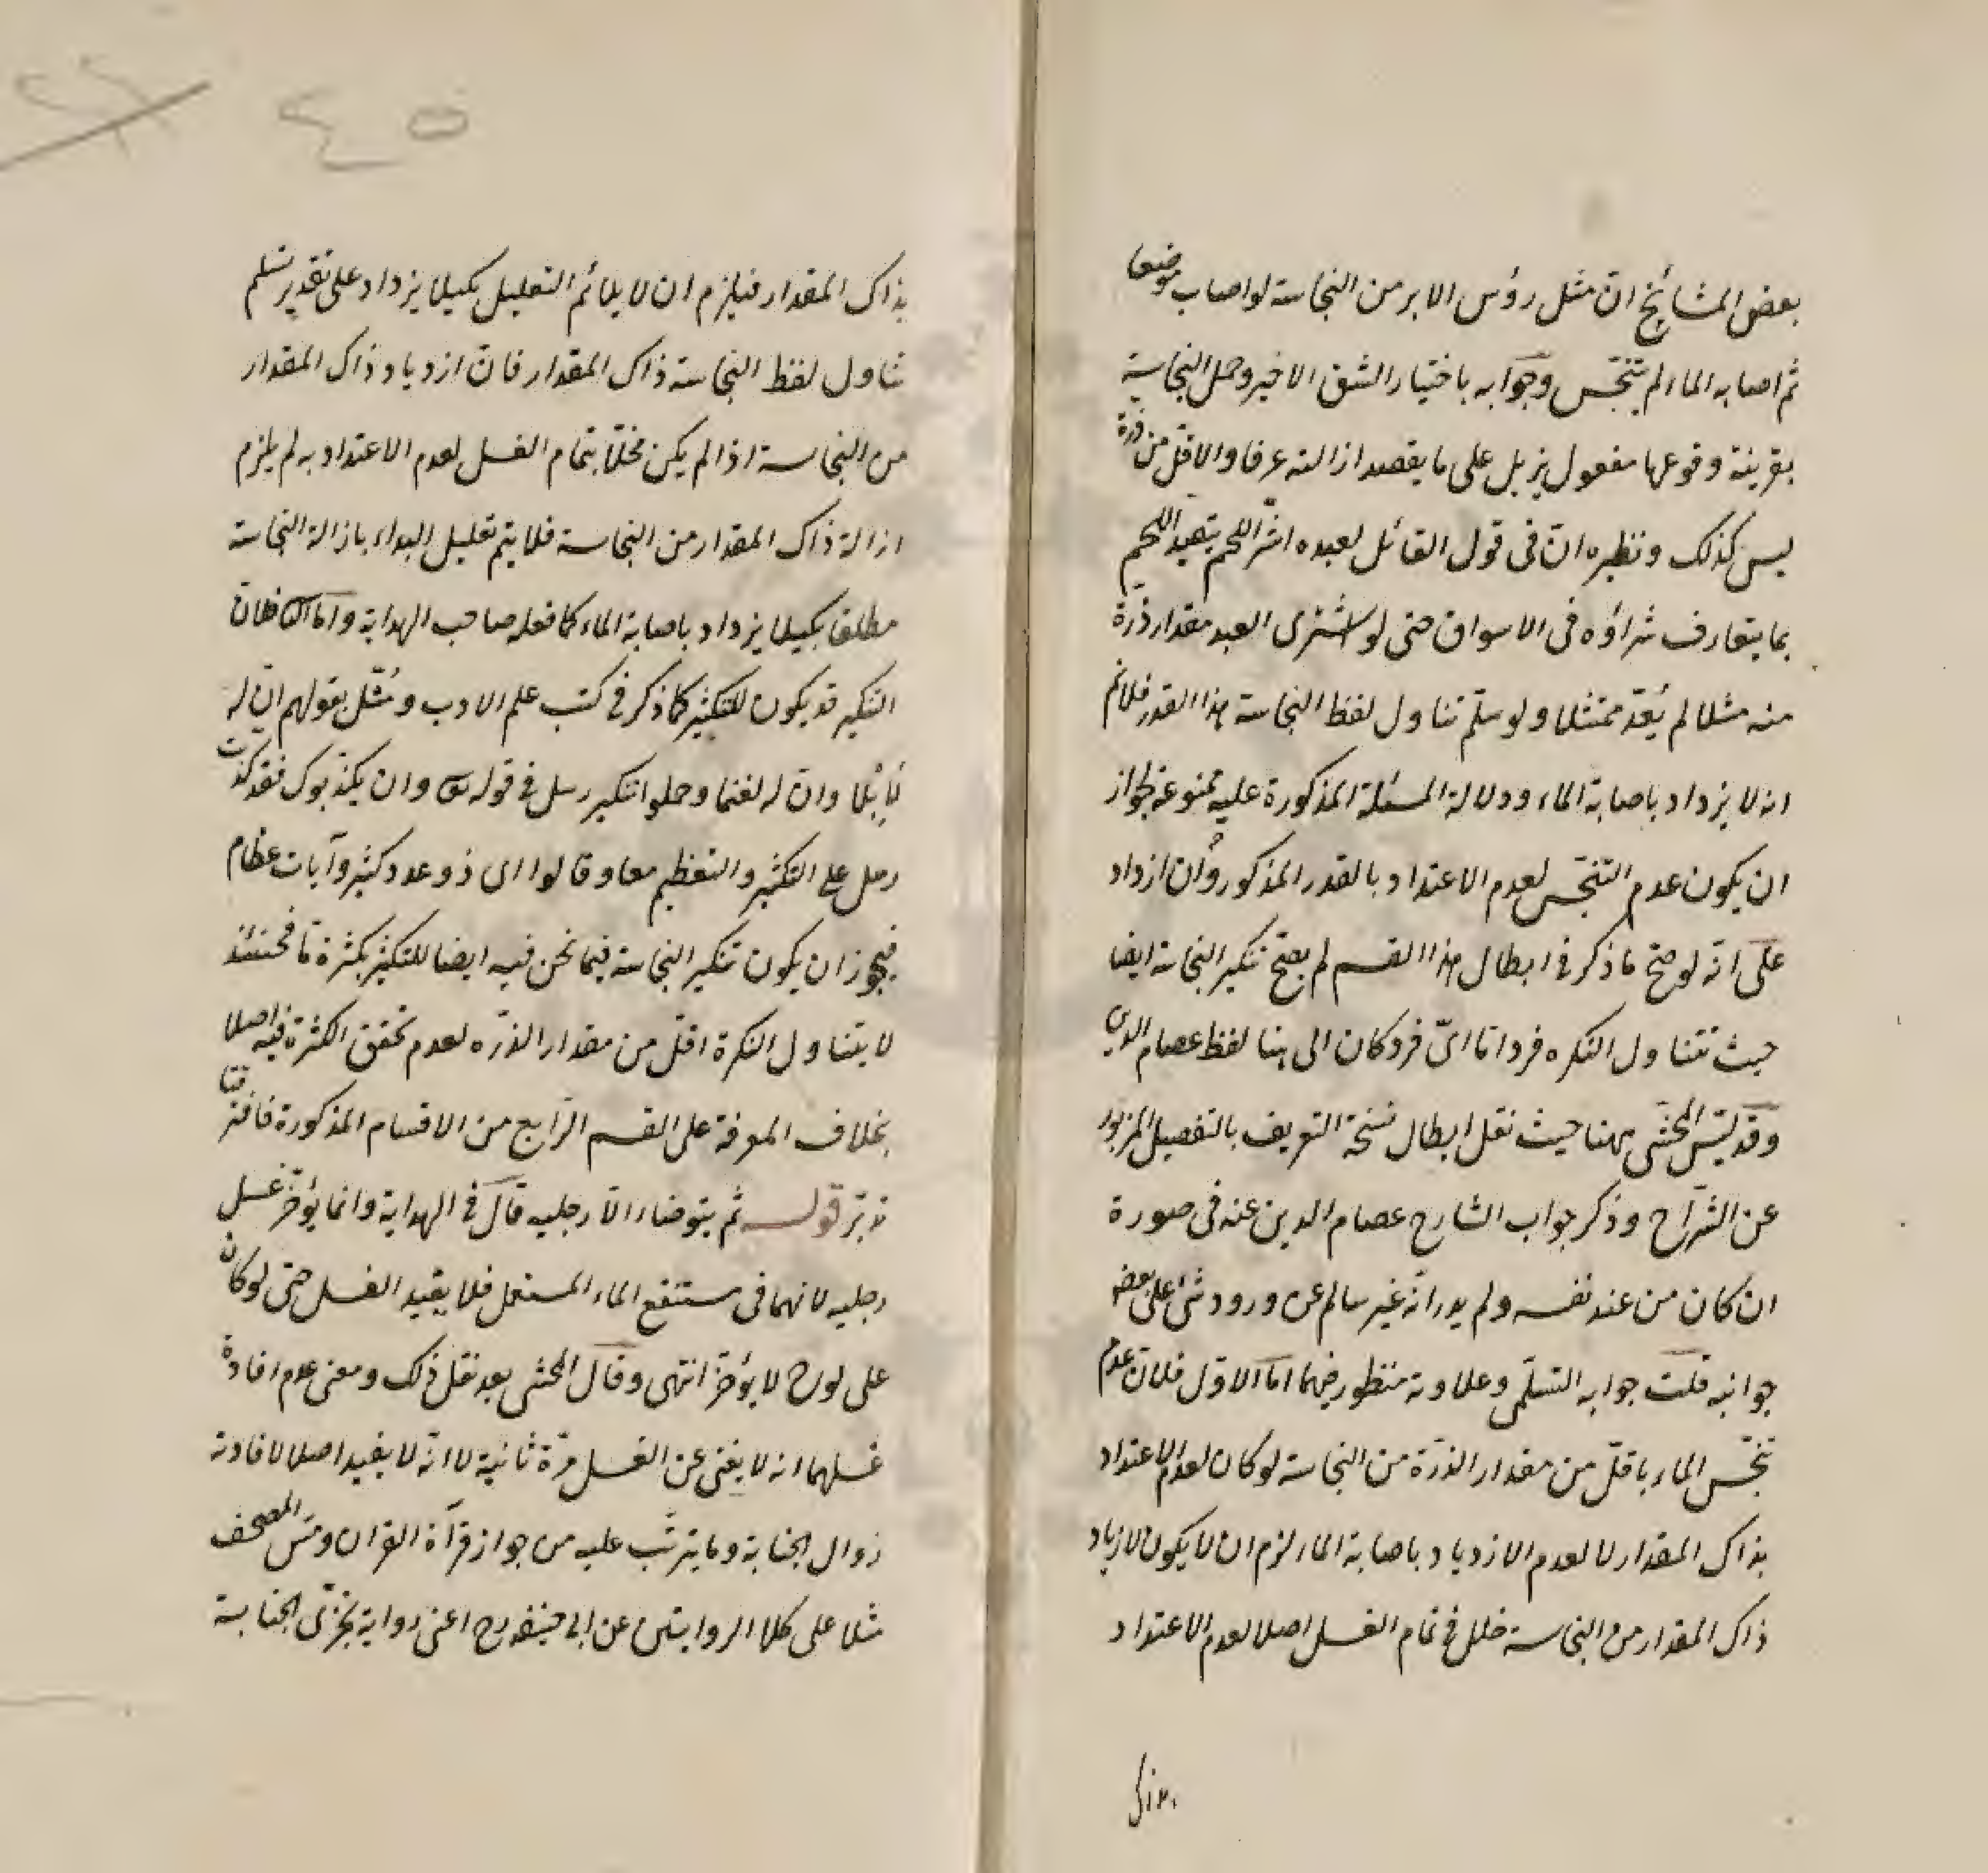 بعض المشائخ ان مثل رؤس الابر من النجاسة لو اصاب موضعا
ثم اصابه الماء لم يتنجس وجوابه باختيار الشق الاخير وحمل النجاسة
بقرينة وقوعها مفعول يزيل على ما يقصد ازالته عرفا والاقل من ذرة
ليس كذلك ونظيره ان في قول القائل لعبده اشتر اللحم يتقيد اللحم
بما يتعارف شراؤه في الاسواق حتى لو اشترى العبد مقدار ذرة
منه مثلا لم يعد ممتثلا ولو سلم تناول لفظ النجاسة هذا القدر فلا نم
انه لا يزداد باصابة الماء ودلالة المسئلة المذكورة عليه ممنوعة لجواز
ان يكون عدم التنجس لعدم الاعتداد بالقدر المذكور وان ازداد
على انه لو صح ما ذكر في ابطال هذا القسم لم يصح تنكير النجاسة ايضا
حيث تتناول النكره فردا ما اىّ فرد كان الى هنا لفظ عصام الدين
وقد لبس المحشى ههنا حيث نقل ابطال نسخة التعريف بالتفصيل المزبور
عن الشراح وذكر جواب الشارح عصام الدين عنه في صورة
ان كان من عند نفسه ولم يدر انه غير سالم عن ورود شئ على بعض
جوانبه قلت جوابه التسلمى وعلاوته منظور فيهما اما الاول فلان عدم
تنجس الماء باقل من مقدار الذرة من النجاسة لو كان لعدم الاعتداد
بذاك المقدار لا لعدم الازدياد باصابة الماء لزم ان لا يكون لازدياد
ذاك المقدار من النجاسة خلل في تمام الغسل اصلا لعدم الاعتداد
بذاك
بذاك المقدار فيلزم ان لا يلائم التعليل بكيلا يزداد على تقدير تسلم
تناول لفظ النجاسة ذاك المقدار فان ازدياد ذاك المقدار
من النجاسة اذا لم يكن مخلا بتمام الغسل لعدم الاعتداد به لم يلزم
ازالة ذاك المقدار من النجاسة فلا يتم تعليل البداء بازالة النجاسة
مطلقا بكيلا يزداد باصابة الماء كما فعله صاحب الهداية واما الثا فلان
التنكير قد يكون للتكثير كما ذكر في كتب علم الادب ومثل بقولهم ان له
لابلا وان له لغنما وحملوا تنكير رسل في قوله تعالى وان يكذبوك فقد كذبت
رسل على التكثير والتعظيم معا وقالوا اى ذو عدد كثير وآيات عظام
فيجوز ان يكون تنكير النجاسة فيما نحن فيه ايضا للتكثير بكثرة ما فحينئذ
لا يتناول النكرة اقل من مقدار الذره لعدم تحقق الكثرة فيه اصلا
بخلاف المعرفة على القسم الرابع من الاقسام المذكورة فافترقا
تدبر قوله ثم يتوضاء الا رجليه قال في الهداية وانما يؤخر غسل
رجليه لانهما في مستنقع الماء المستعمل فلا يفيد الغسل حتى لو كان
على لوح لا يؤخر انتهى وقال المحشى بعد نقل ذلك ومعنى عدم افادة
غسلهما انه لا يغنى عن الغسل مرة ثانية لا انه لا يفيد اصلا لافادته
زوال الجنابة وما يترتب عليه من جواز قرآة القران ومس المصحف
مثلا على كلا الروايتين عن ابى حنيفة رح اعنى رواية تجزى الجنابة